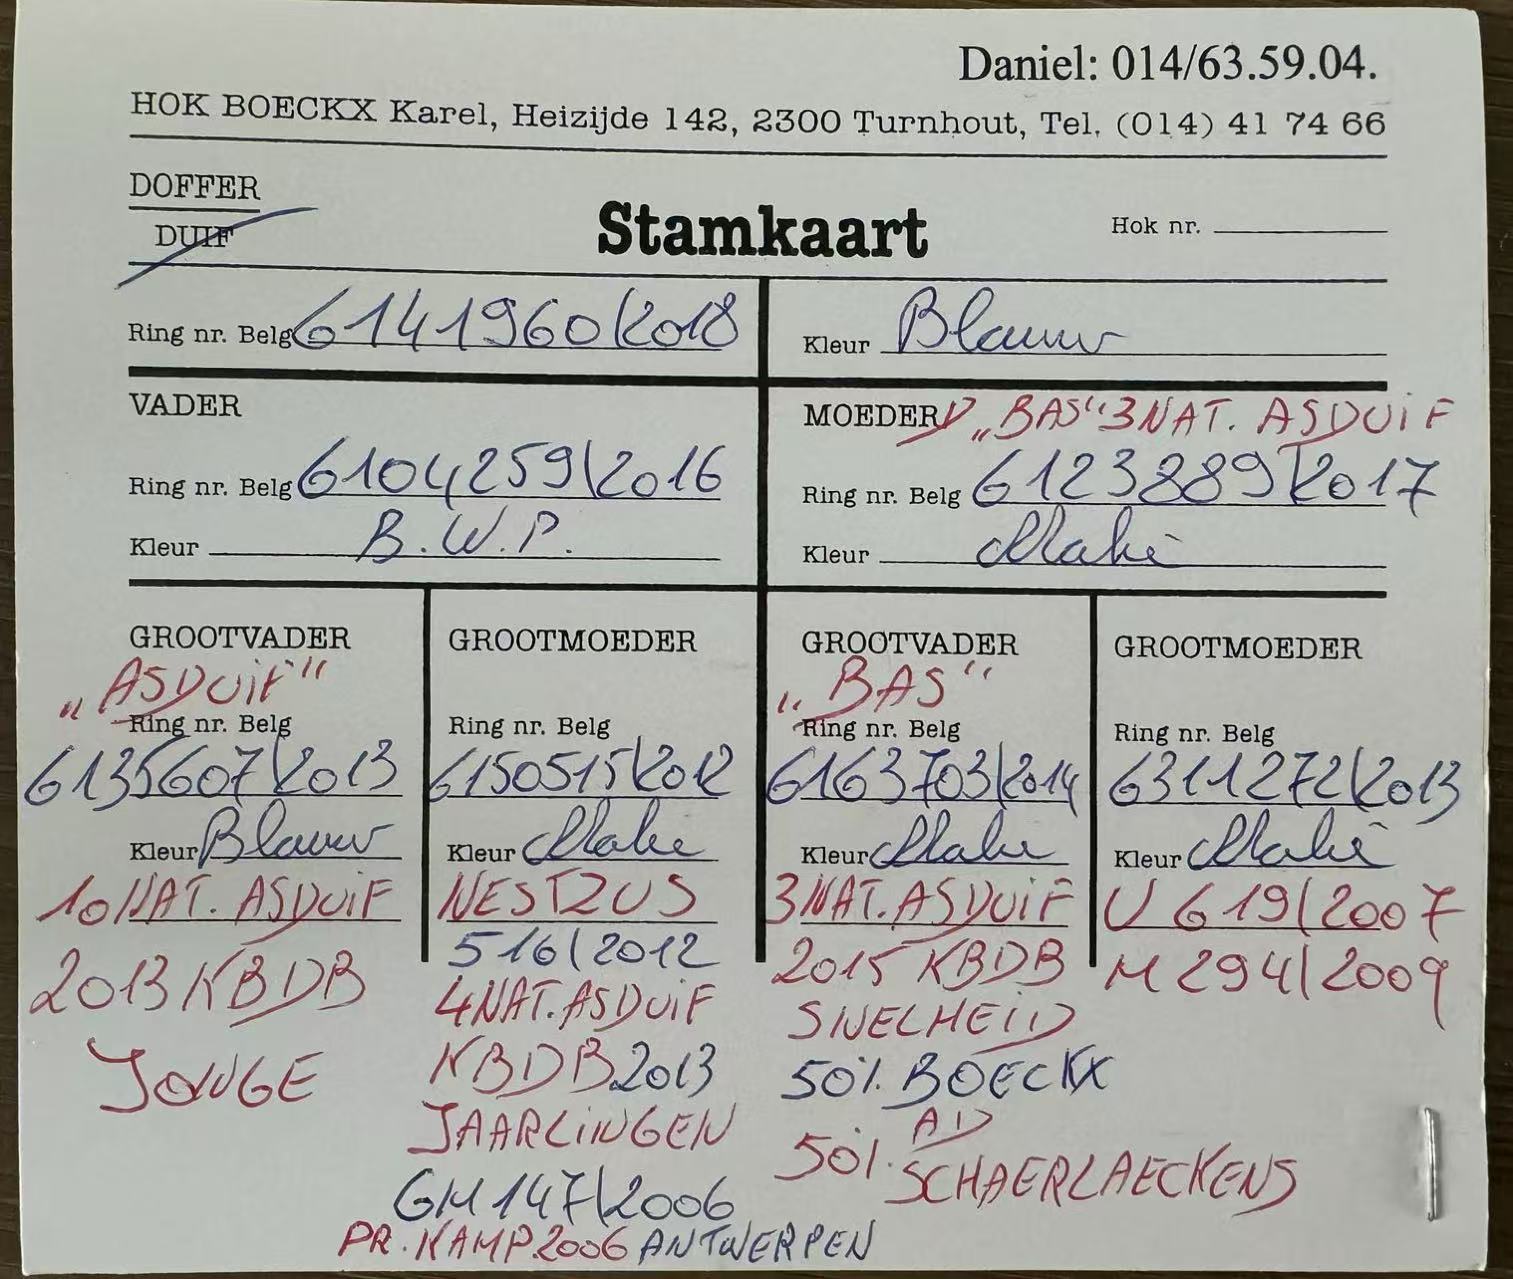 Daniel: 014/63.59.04.
HOK BOECKX Karel, Heizijde 142, 2300 Turnhout, Tel. (014) 41 74 66
DOFFER
DUIF
Stamkaart
Hok nr.
Ring nr. Belg 6141960/2018
Kleur Blauw
VADER
Ring nr. Belg 6104259/2016
Kleur B.W.P.
MOEDER D „BAS“ 3 NAT. ASDUIF
Ring nr. Belg 6123889/2017
Kleur
GROOTVADER
„ASDUIF“
Ring nr. Belg
6135607/2013
Kleur Blauw
10 NAT. ASDUIF
2013 KBDB
JONGE
GROOTMOEDER
Ring nr. Belg
6150515/2012
Kleur
NESTZUS
516/2012
4 NAT. ASDUIF
KBDB 2013
JAARLINGEN
GM 147/2006
PR. KAMP. 2006 ANTWERPEN
GROOTVADER
„BAS“
Ring nr. Belg
6163703/2014
Kleur
3 NAT. ASDUIF
2015 KBDB
SNELHEID
50% BOECKX
AD
50% SCHAERLAECKENS
GROOTMOEDER
Ring nr. Belg
6311272/2013
Kleur
V 619/2007
M 294/2009